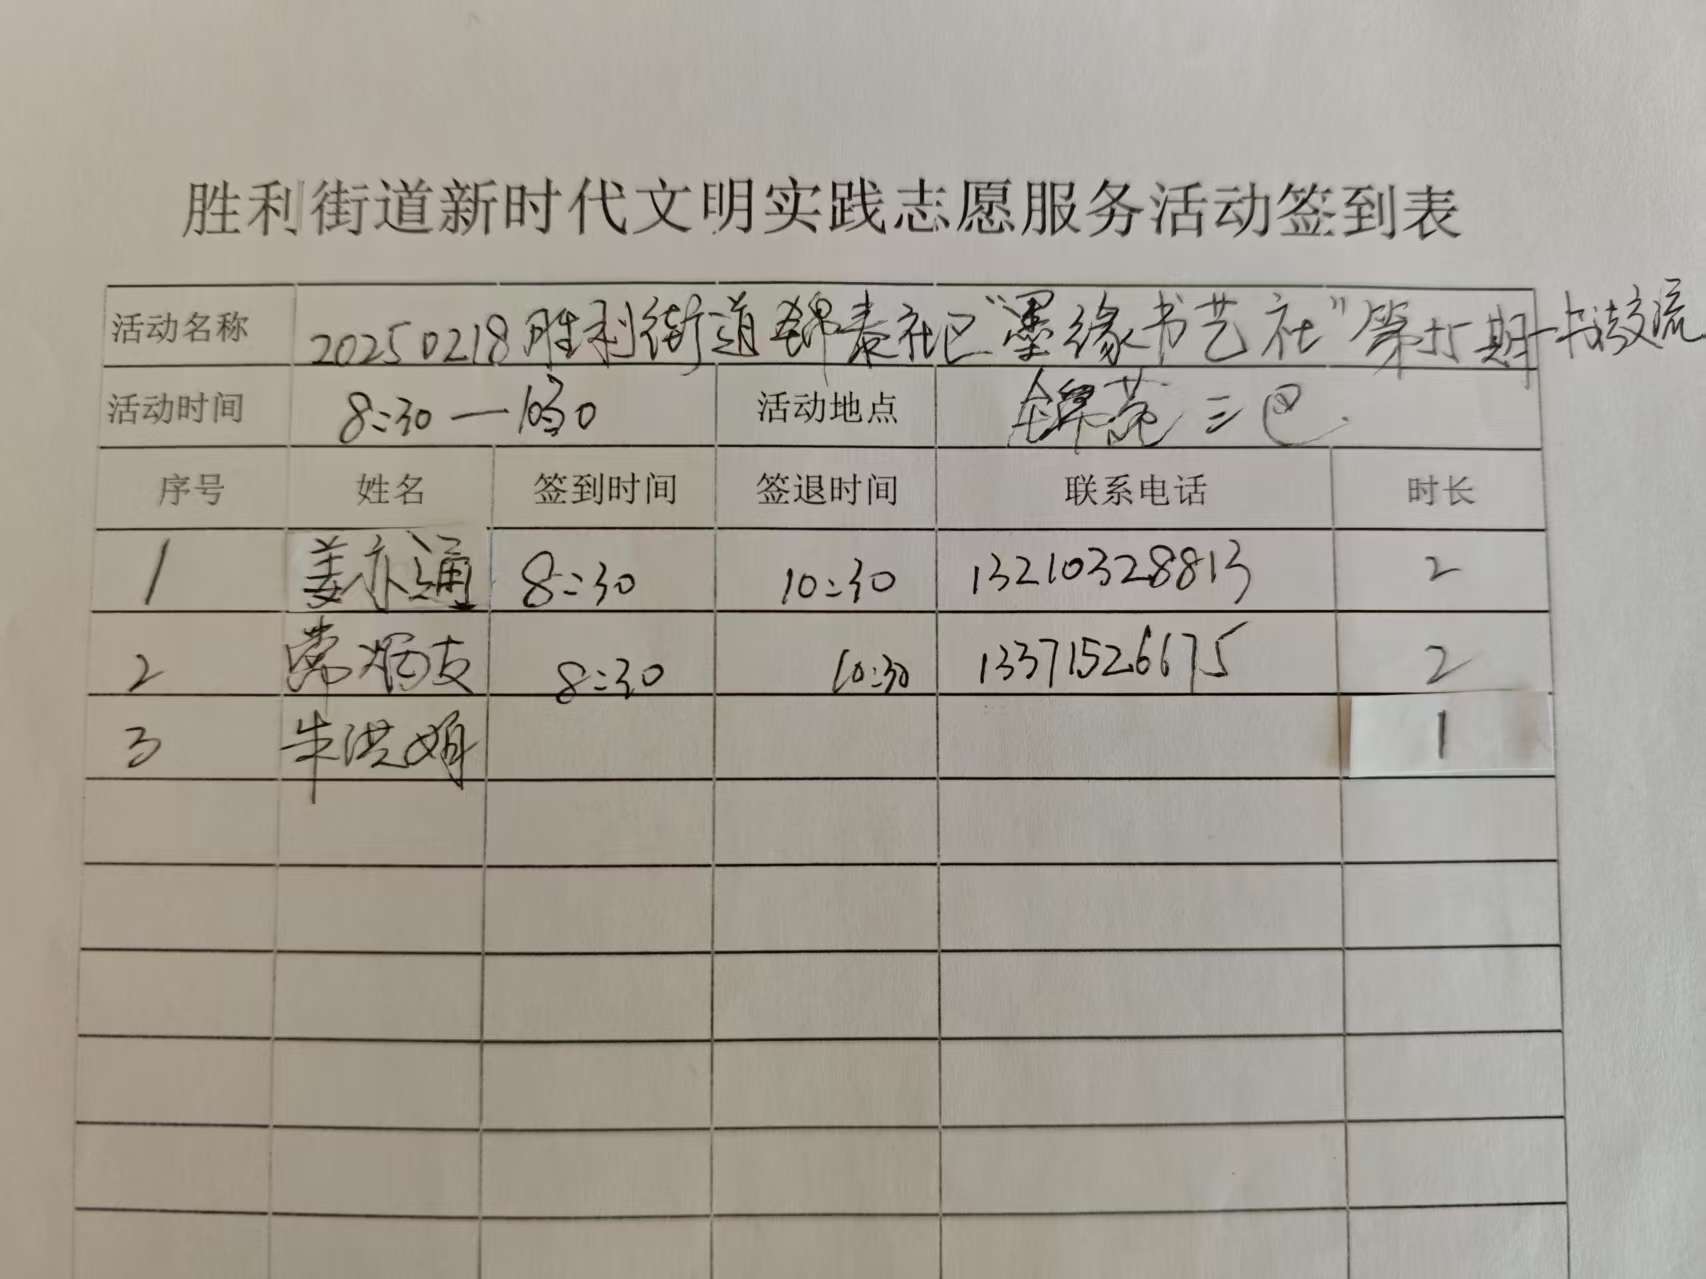 胜利街道新时代文明实践志愿服务活动签到表
活动名称 20250218胜利街道锦泰社区“墨缘书艺社”第十五期—书法交流
活动时间 8:30—10:30 活动地点 锦苑三区
序号 姓名 签到时间 签退时间 联系电话 时长
1 姜亦通 8:30 10:30 13210328813 2
2 常炳友 8:30 10:30 13371526675 2
3 朱洪娟 1